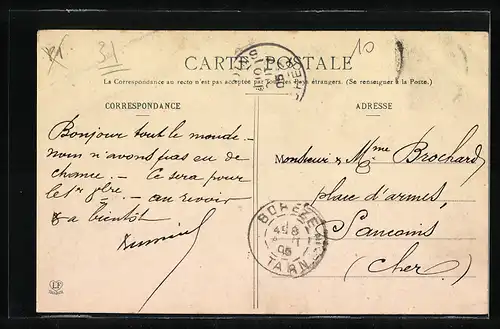 31
10
CARTE POSTALE
La Correspondance au recto n'est pas acceptée par tous les pays étrangers. (Se renseigner à la Poste.)
CORRESPONDANCE
Bonjour tout le monde –
nous n'avons pas eu de
chance. – Ce sera pour
le 1er – au revoir
& a bientôt
ADRESSE
Monsieur & Mme Brochard
place d'armes,
Sancoins
(Cher)
TARN
LF